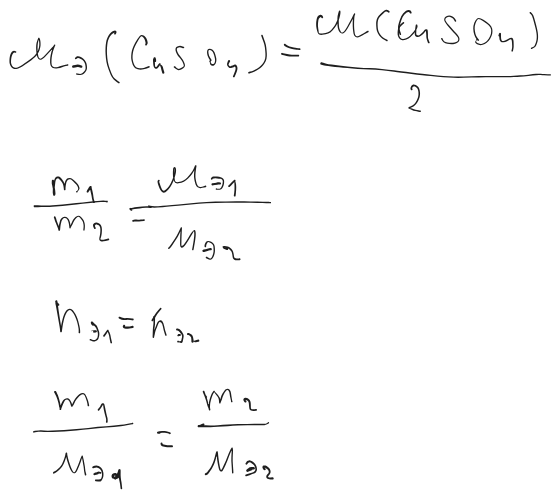 Mэ(CuSO4) = M(CuSO4) / 2
m1 / m2 = Mэ1 / Mэ2
nэ1 = nэ2
m1 / Mэ1 = m2 / Mэ2